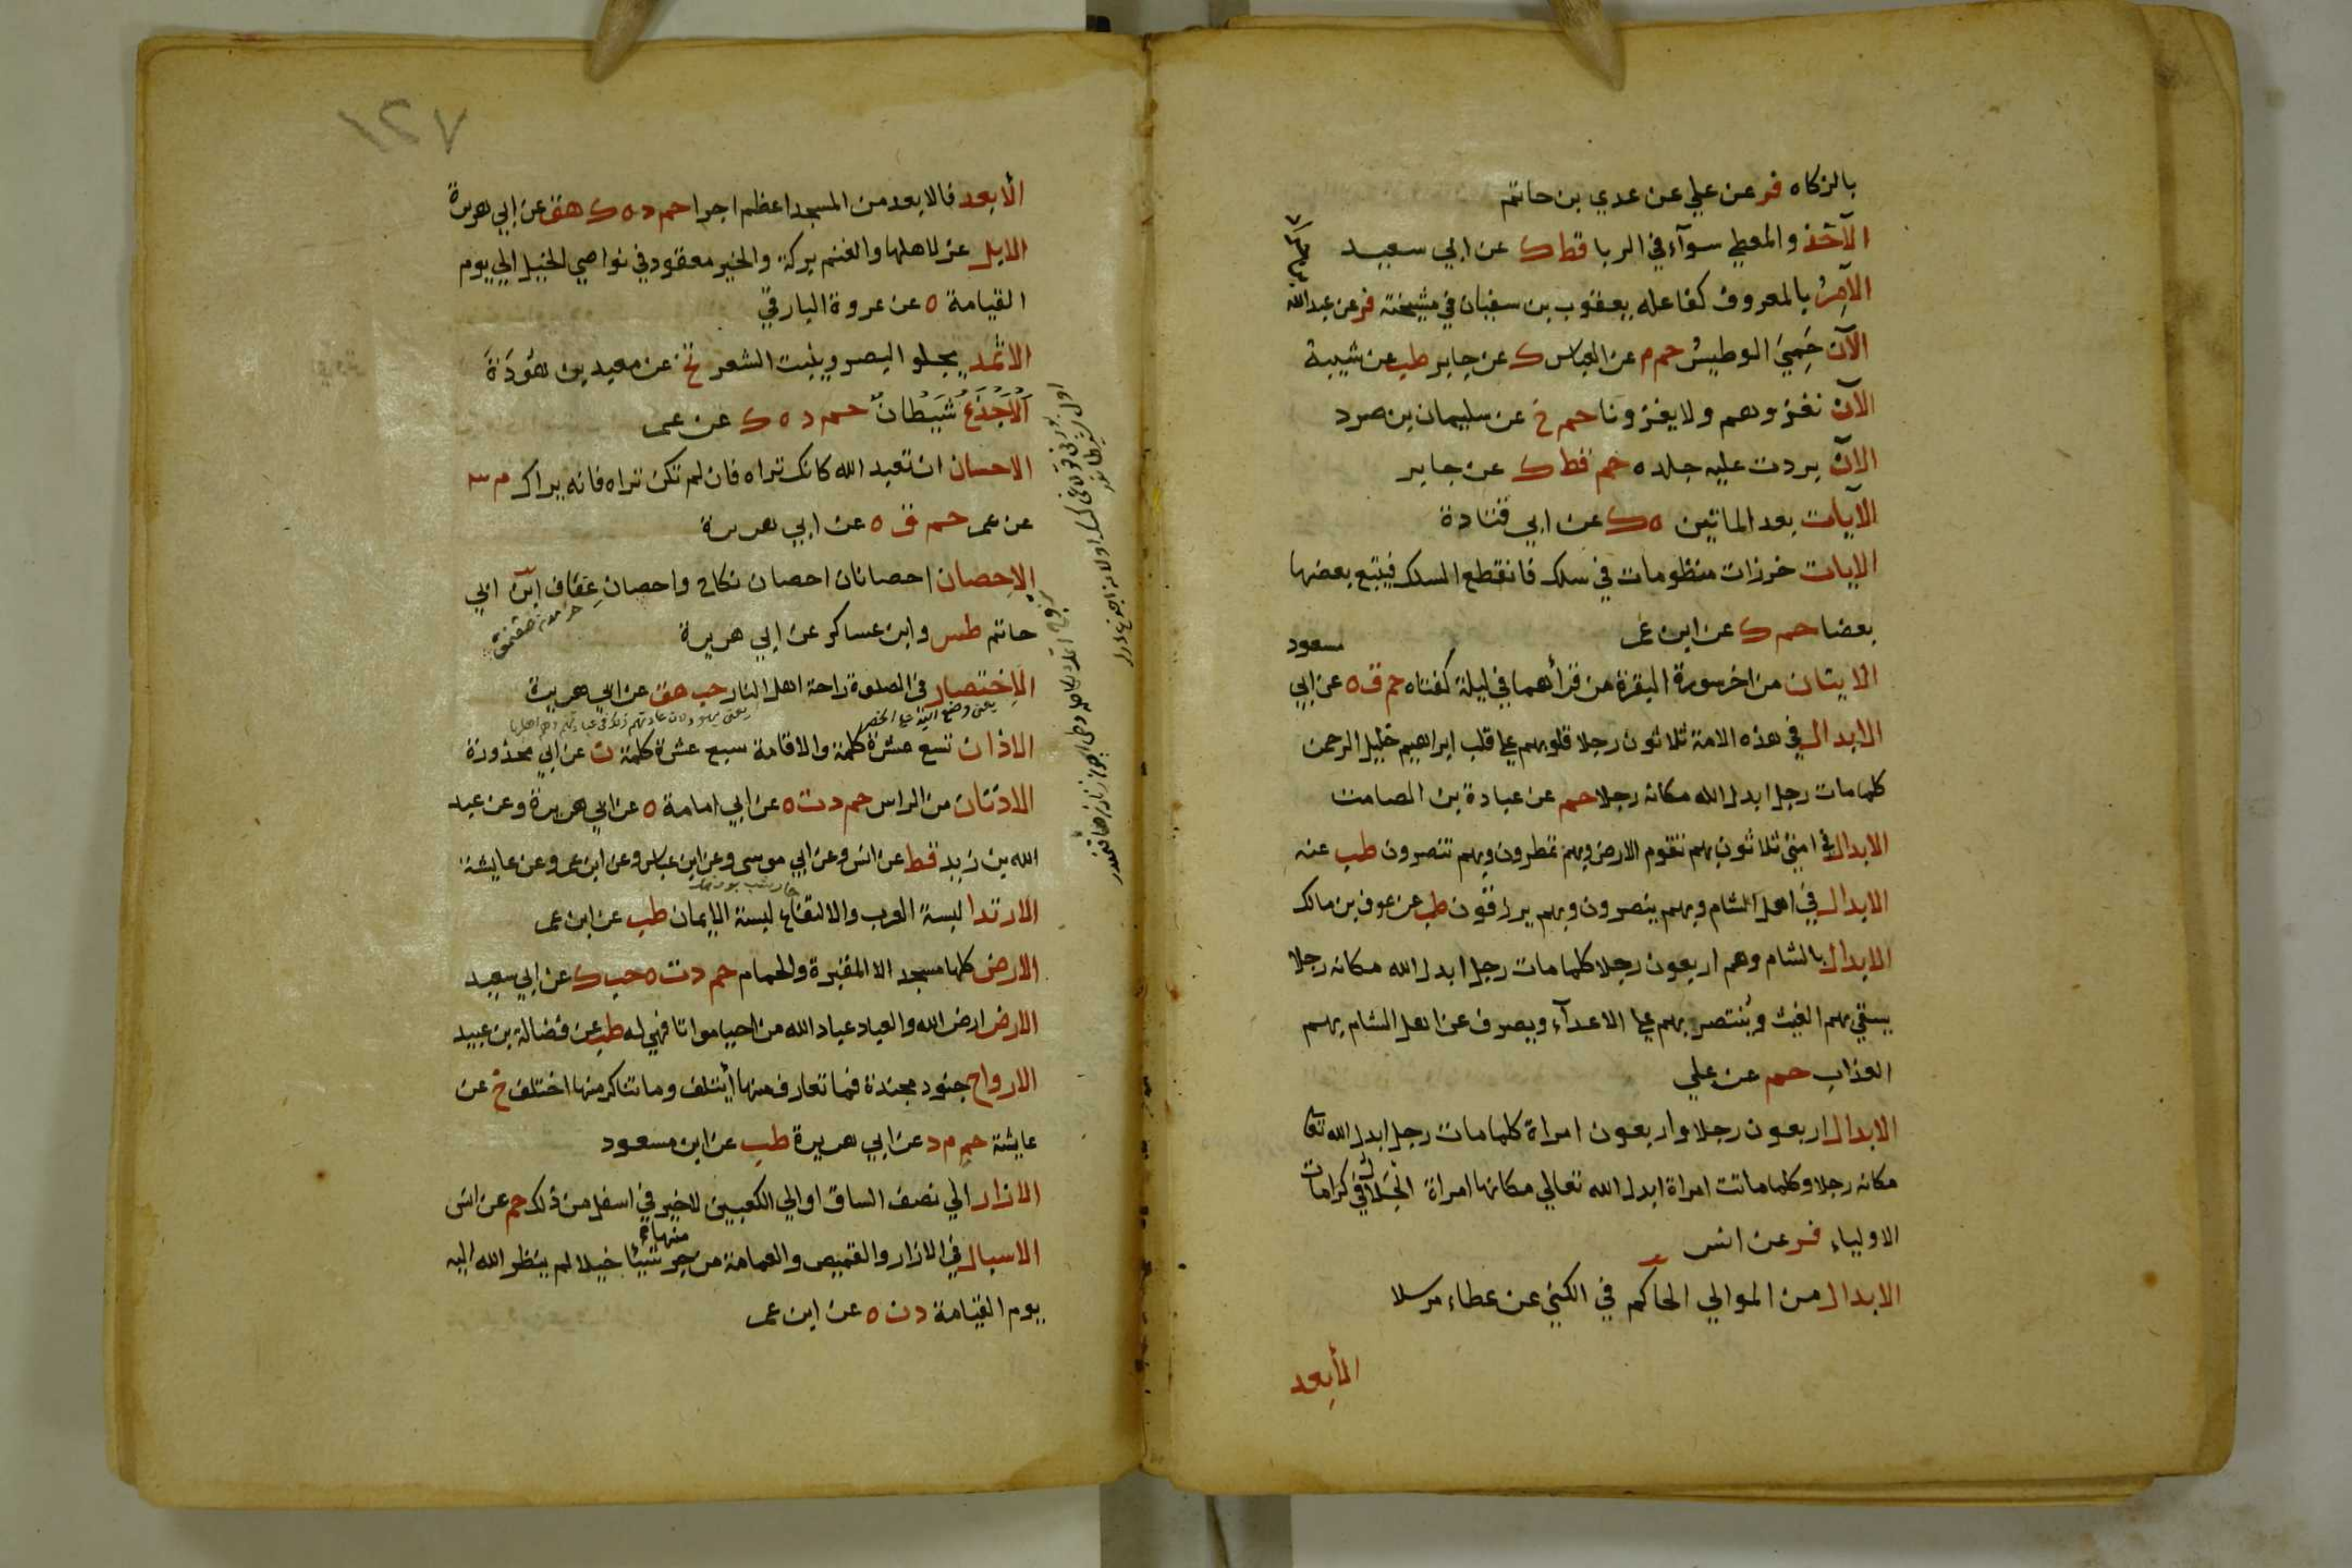 بالزكاه فر عن علي عن عدي بن حاتم
الآخذ والمعطي سوآء في الربا قط ك عن ابي سعيد
الآمر بالمعروف كفاعله يعقوب بن سفيان في مشيخته فر عن عبدالله
الآن حَمِيَ الوطيس حم م عن العباس ك عن جابر طب عن شيبة
الآن نغزوهم ولا يغزونا حم خ عن سليمان بن صرد
الآن بردت عليه جلده حم قط ك عن جابر
الآيات بعد المائتين ه ك عن ابي قتادة
الآيات خرزات منظومات في سلك فانقطع السلك فيتبع بعضها
بعضا حم ك عن ابن عمر
مسعود
الآيتان من اخر سورة البقرة من قرأهما في ليلة كفتاه حم ق ه عن ابي
الابدال في هذه الامة ثلاثون رجلا قلوبهم على قلب ابراهيم خليل الرحمن
كلما مات رجل ابدل الله مكانه رجلا حم عن عبادة بن الصامت
الابدال في امتي ثلاثون بهم تقوم الارض وبهم تمطرون وبهم تنصرون طب عنه
الابدال في اهل الشام وبهم ينصرون وبهم يرزقون طب عن عوف بن مالك
الابدال بالشام وهم اربعون رجلا كلما مات رجل ابدل الله مكانه رجلا
يسقي بهم الغيث وينتصر بهم على الاعدآء ويصرف عن اهل الشام بهم
العذاب حم عن علي
الابدال اربعون رجلا واربعون امراة كلما مات رجل ابدل الله تعا
مكانه رجلا وكلما ماتت امراة ابدل الله تعالي مكانها امراة الخلال في كرامات
الاولياء فر عن انس
الابدال من الموالي الحاكم في الكني عن عطاء مرسلا
الأبعد
٧٢١
الأبعد فالابعد من المسجد اعظم اجرا حم د ه ك هق عن ابي هريرة
الابل عز لاهلها والغنم بركة والخير معقود في نواصي الخيل الي يوم
القيامة ه عن عروة البارقي
الاثمد يجلو البصر وينبت الشعر تخ عن معبد بن هَوْذَةَ
اَلْاَجْدَعُ شَيْطَانٌ حم د ه ك عن عمر
الاحسان ان تعبد الله كانك تراه فان لم تكن تراه فانه يراك م ٣
عن عمر حم ق ه عن ابي هريرة
الاحصان احصانان احصان نكاح واحصان عفاف ابن ابي
حاتم طس وابن عساكر عن ابي هريرة
الاختصار في الصلوة راحة اهل النار حب هق عن ابي هريرة
يعني وضع اليد على الخصر
الاذان تسع عشرة كلمة والاقامة سبع عشرة كلمة ن عن ابي محذورة
الاذنان من الراس حم د ت ه عن ابي امامة ه عن ابي هريرة وعن عبد
الله بن زيد قط عن انس وعن ابي موسى وعن ابن عباس وعن ابن عمر وعن عايشة
الارتدا لبسة العرب والالتفاع لبسة الايمان طب عن ابن عمر
الارض كلها مسجد الا المقبرة والحمام حم د ت ه حب ك عن ابي سعيد
الارض ارض الله والعباد عباد الله من احيا مواتا فهي له طب عن فضالة بن عبيد
الارواح جنود مجندة فما تعارف منها أيتلف وما تناكر منها اختلف خ عن
عايشة حم م د عن ابي هريرة طب عن ابن مسعود
الازار الي نصف الساق او الي الكعبين لا خير في اسفل من ذلك حم عن انس
منها
الاسبال في الازار والقميص والعمامة من جر شيئا خيلا لم ينظر الله اليه
يوم القيامة د ن ه عن ابن عمر